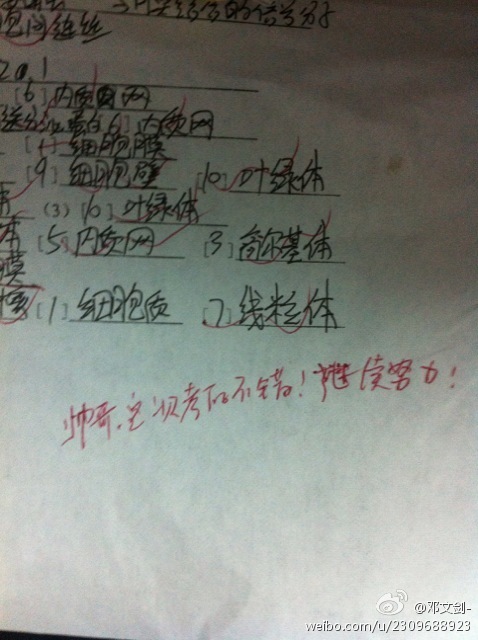 胞间连丝
2 0 1
[6] 内质网
蛋白 6] 内质网
细胞膜
[9] 细胞壁 10] 叶绿体
体 (3) 10] 叶绿体
体 [5] 内质网 [3] 高尔基体
膜
[1] 细胞质 [7] 线粒体
帅哥,这次考的不错!继续努力!
@邓文剑-
weibo.com/u/2309688923